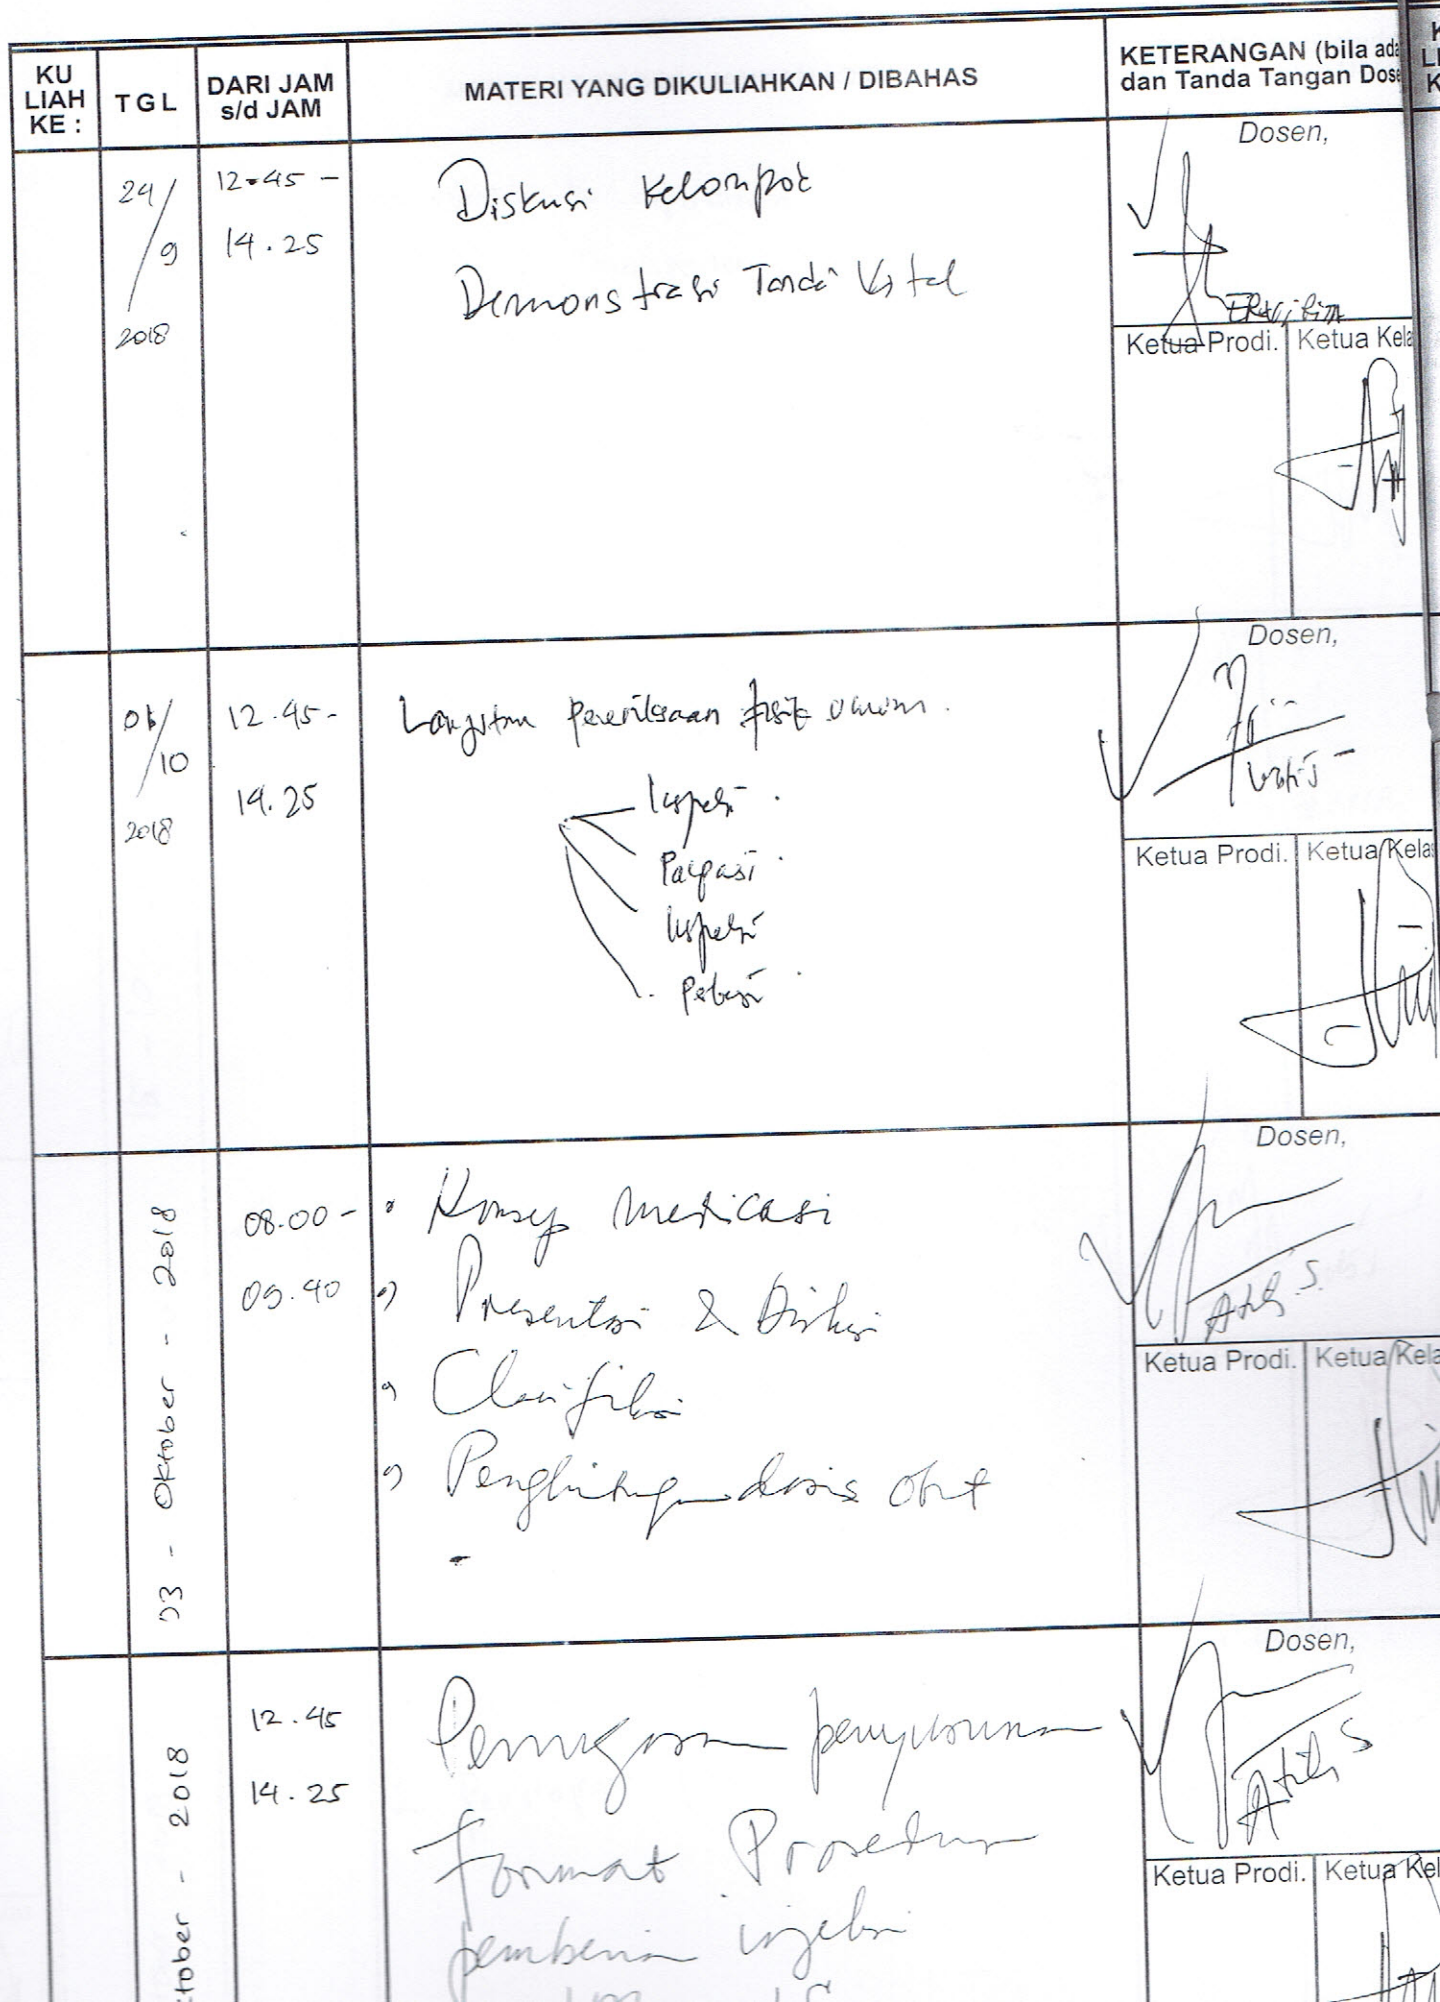 KU
LIAH
KE :
T G L
DARI JAM
s/d JAM
MATERI YANG DIKULIAHKAN / DIBAHAS
KETERANGAN (bila ada
dan Tanda Tangan Dose
24/
9
2018
12.45 -
14.25
Diskusi Kelompok
Demonstrasi Tanda Vital
Dosen,
Ketua Prodi.
Ketua Kela
01/
10
2018
12.45-
14.25
Lanjutan pemeriksaan fisik umum.
Inspeksi
Palpasi
Inspeksi
Dosen,
Ketua Prodi.
Ketua Kelas
03 - Oktober - 2018
08.00 -
09.40
Konsep medicasi
Presentasi & Diskusi
Clarifikasi
Penghitungan dosis obat
Dosen,
Atik S.
Ketua Prodi.
Ketua Kela
ktober - 2018
12.45
14.25
Penugasan penyusunan
Format Prosedur
pemberian injeksi
Dosen,
Atik S
Ketua Prodi.
Ketua Kel